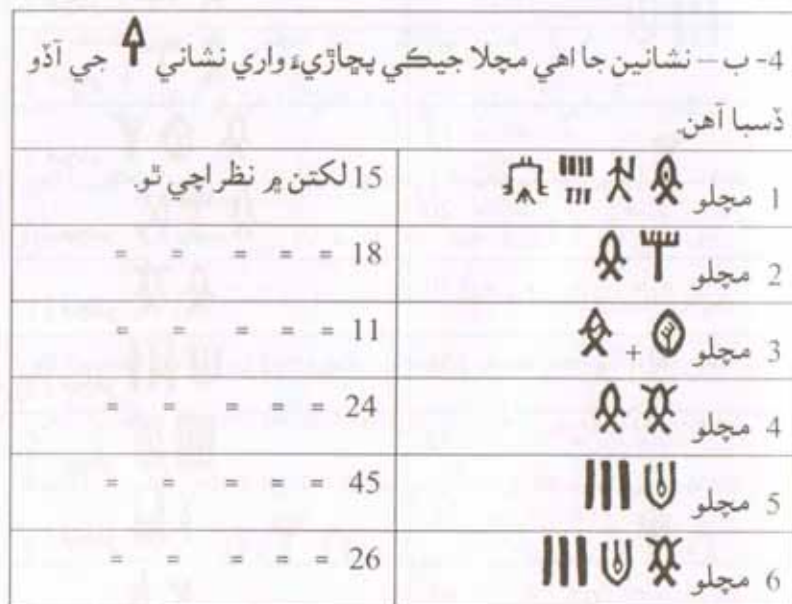 4- ب – نشانين جا اهي مڇلا جيڪي پڇاڙيءَ واري نشاني جي آڏو
ڏسبا آهن.
1 مڇلو 15 لکتن ۾ نظر اچي ٿو.
2 مڇلو 18 = = = = =
3 مڇلو + 11 = = = = =
4 مڇلو 24 = = = = =
5 مڇلو 45 = = = = =
6 مڇلو 26 = = = = =